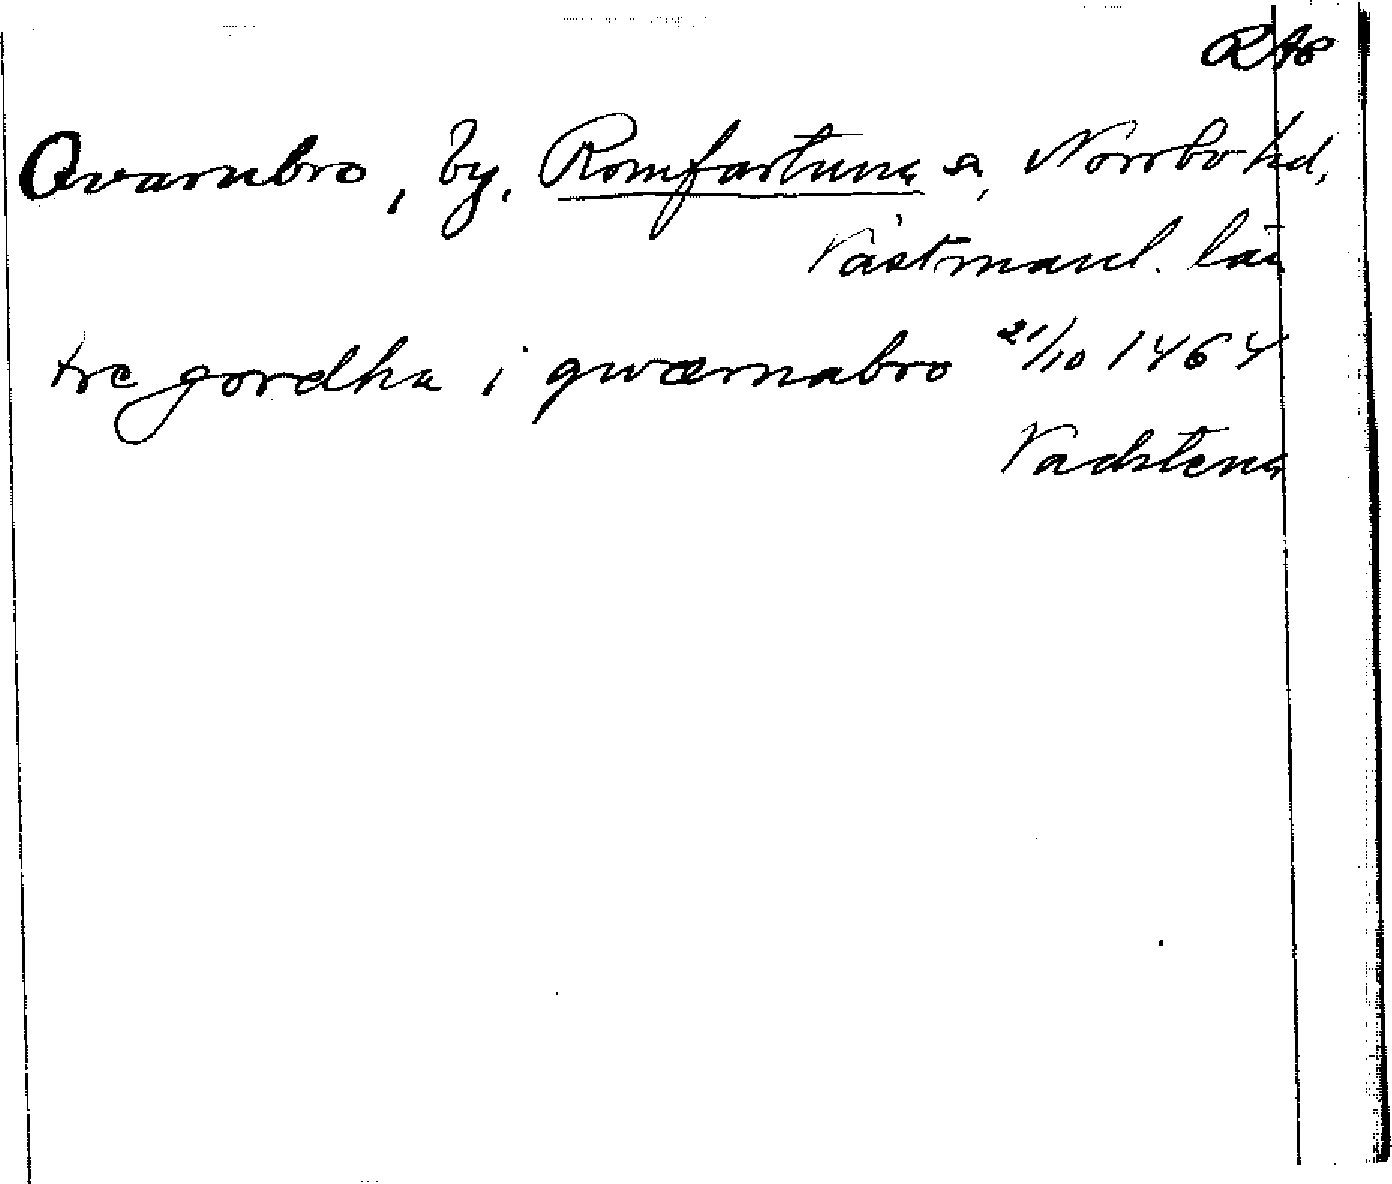 RAp
Qvarnbro, by, Romfartuna sn, Norrbo hd,
Västmanl. län
tre gordha i qwærnabro 21/10 1464
Vadstena